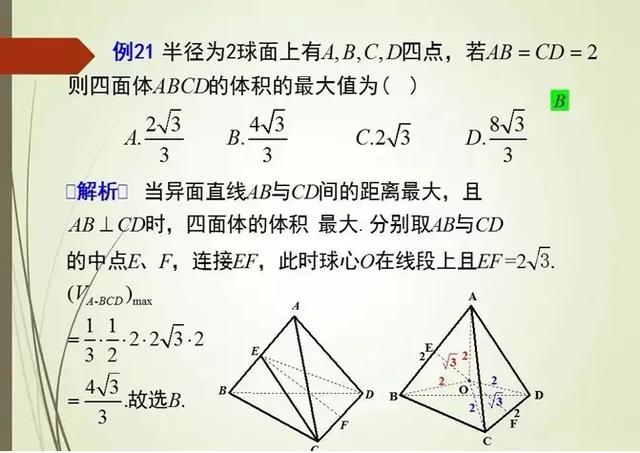 例21 半径为2球面上有A,B,C,D四点，若AB=CD=2
则四面体ABCD的体积的最大值为( )
B
A. 2√3/3 B. 4√3/3 C. 2√3 D. 8√3/3
【解析】 当异面直线AB与CD间的距离最大，且
AB⊥CD时，四面体的体积 最大. 分别取AB与CD
的中点E、F，连接EF，此时球心O在线段上且EF=2√3.
(V_{A-BCD})_{max}
= 1/3 · 1/2 · 2 · 2√3 · 2
= 4√3/3 .故选B.
A
E
B
D
F
C
A
E
2
√3
2
2
O
2
B
D
2
√3
2
F
C